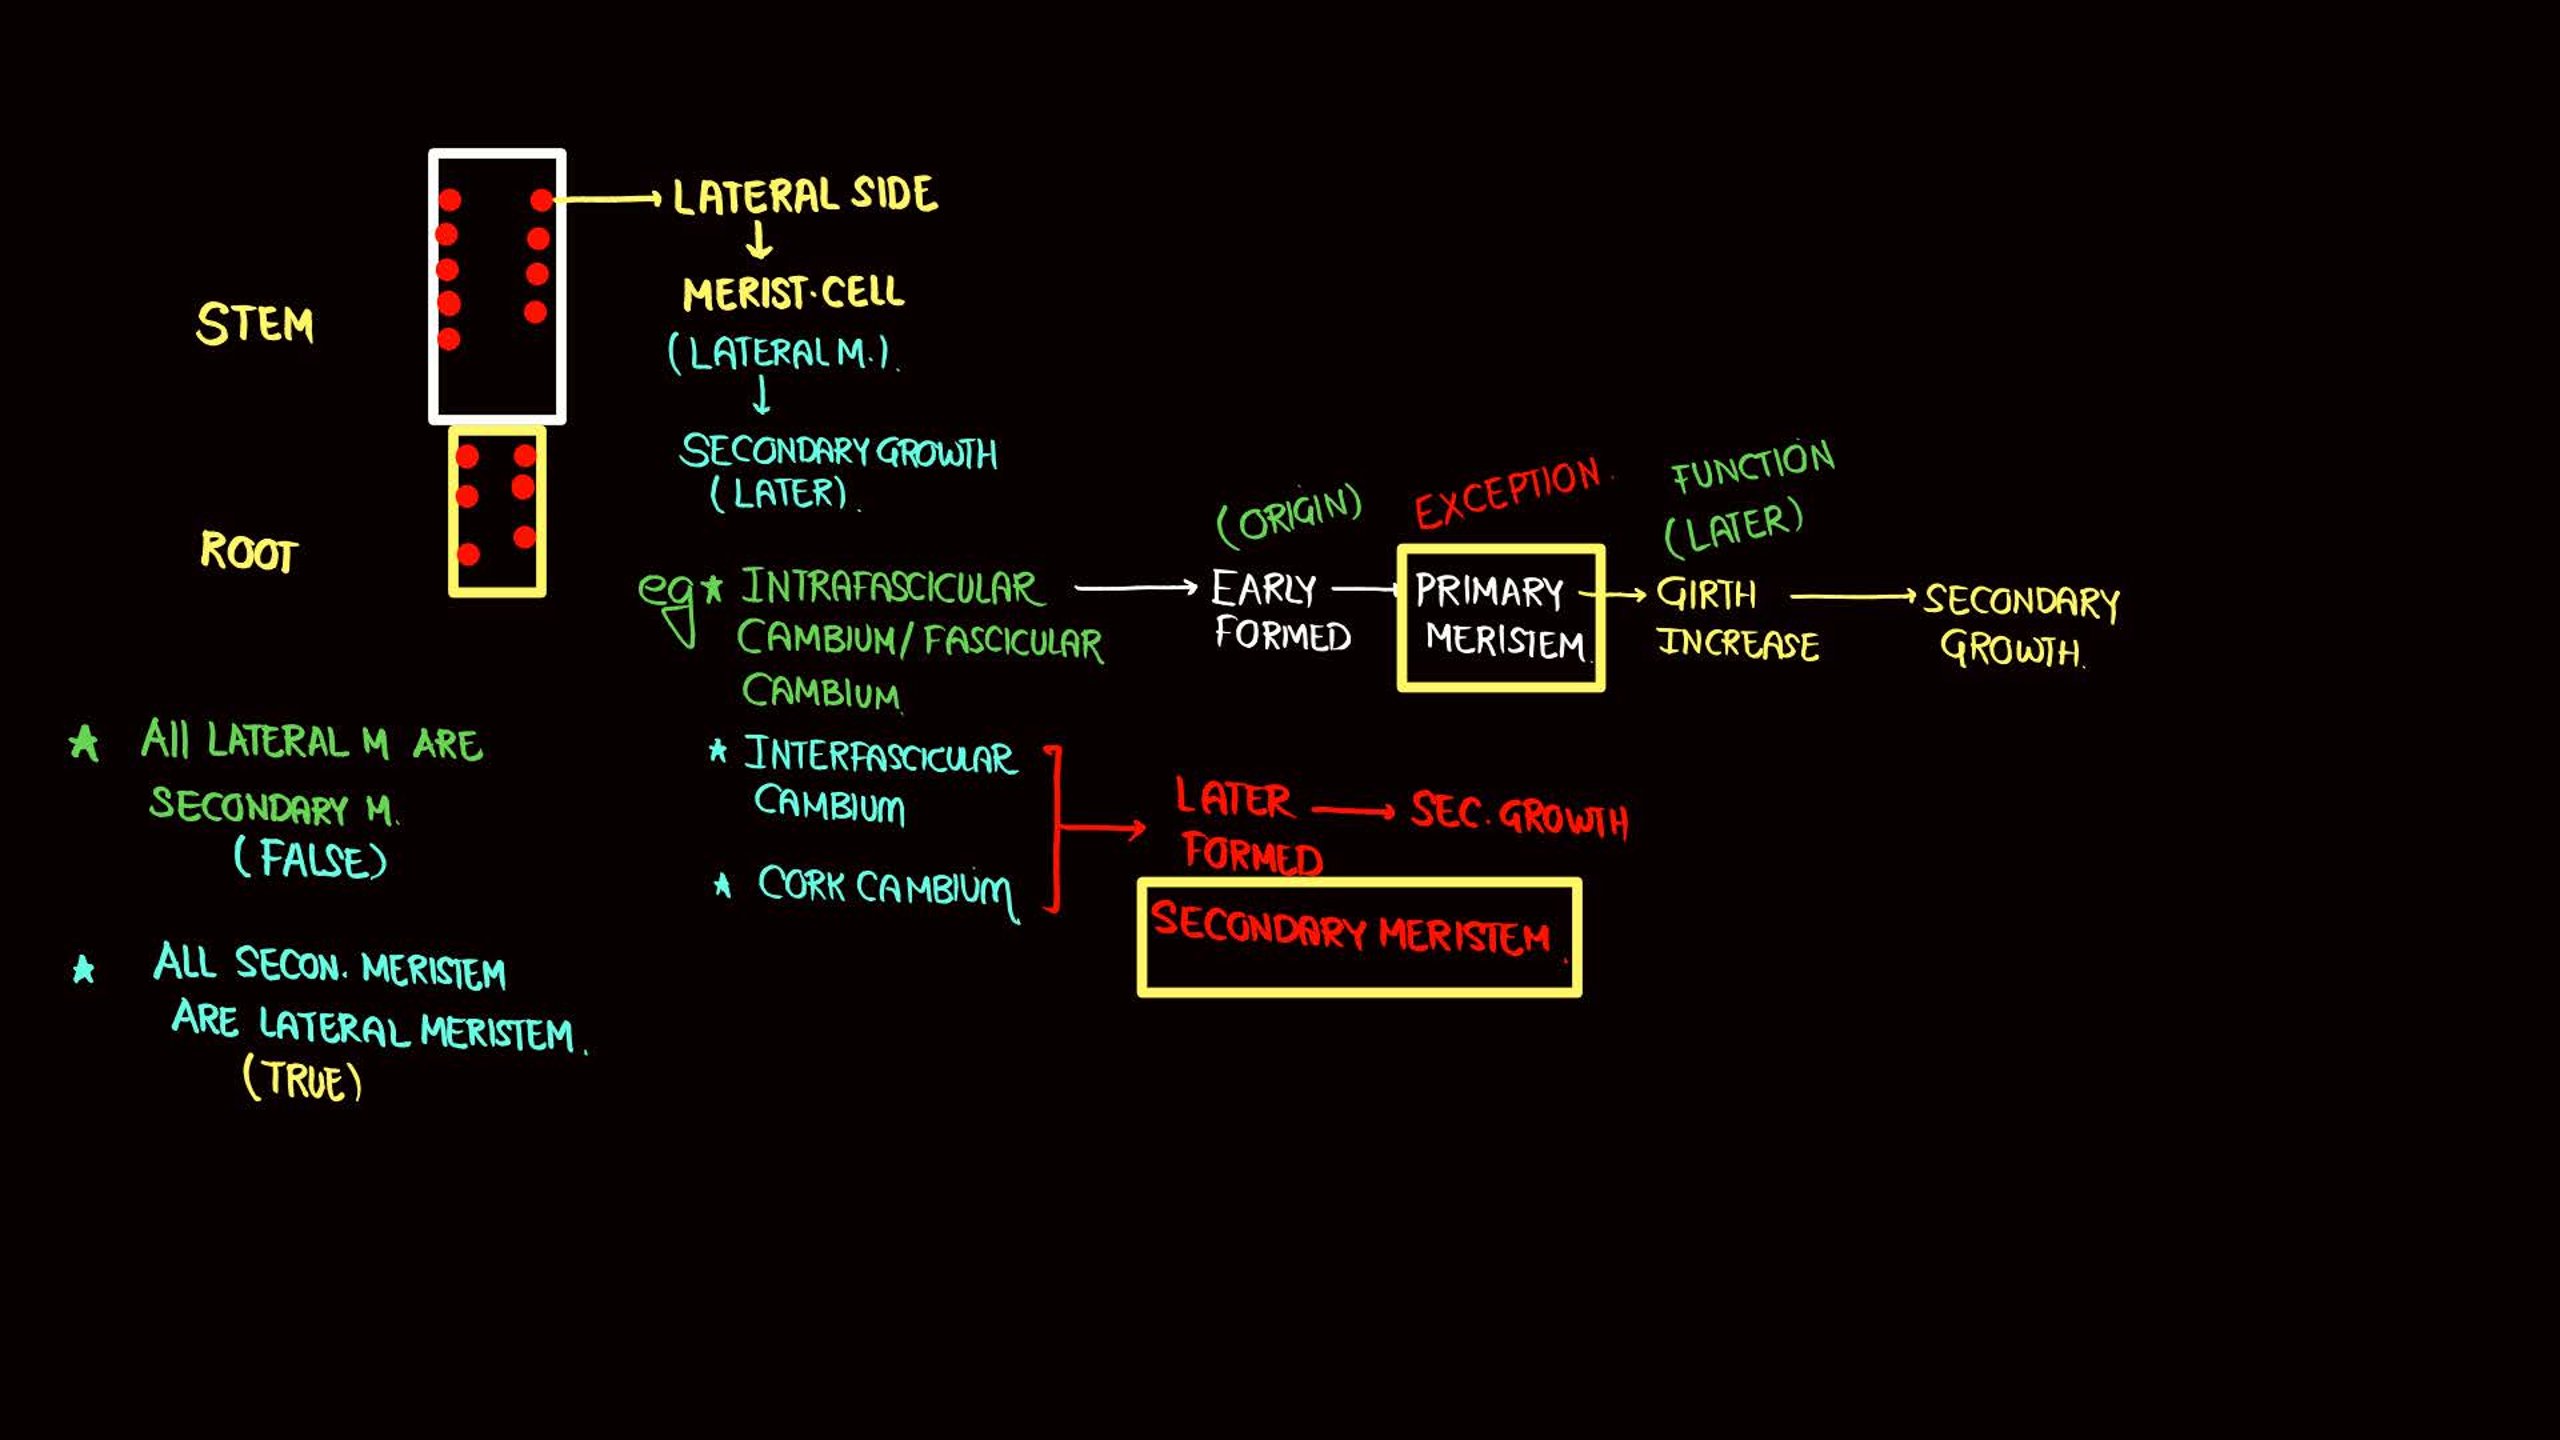 LATERAL SIDE
MERIST. CELL
(LATERAL M.).
STEM
SECONDARY GROWTH
(LATER).
ROOT
(ORIGIN)
EXCEPTION.
FUNCTION
(LATER)
eg ★ INTRAFASCICULAR
CAMBIUM/FASCICULAR
CAMBIUM.
EARLY
FORMED
PRIMARY
MERISTEM.
GIRTH
INCREASE
SECONDARY
GROWTH.
★ All LATERAL M ARE
SECONDARY M.
(FALSE)
★ INTERFASCICULAR
CAMBIUM
★ CORK CAMBIUM
LATER
FORMED
SEC. GROWTH
SECONDARY MERISTEM.
★ ALL SECON. MERISTEM
ARE LATERAL MERISTEM.
(TRUE)